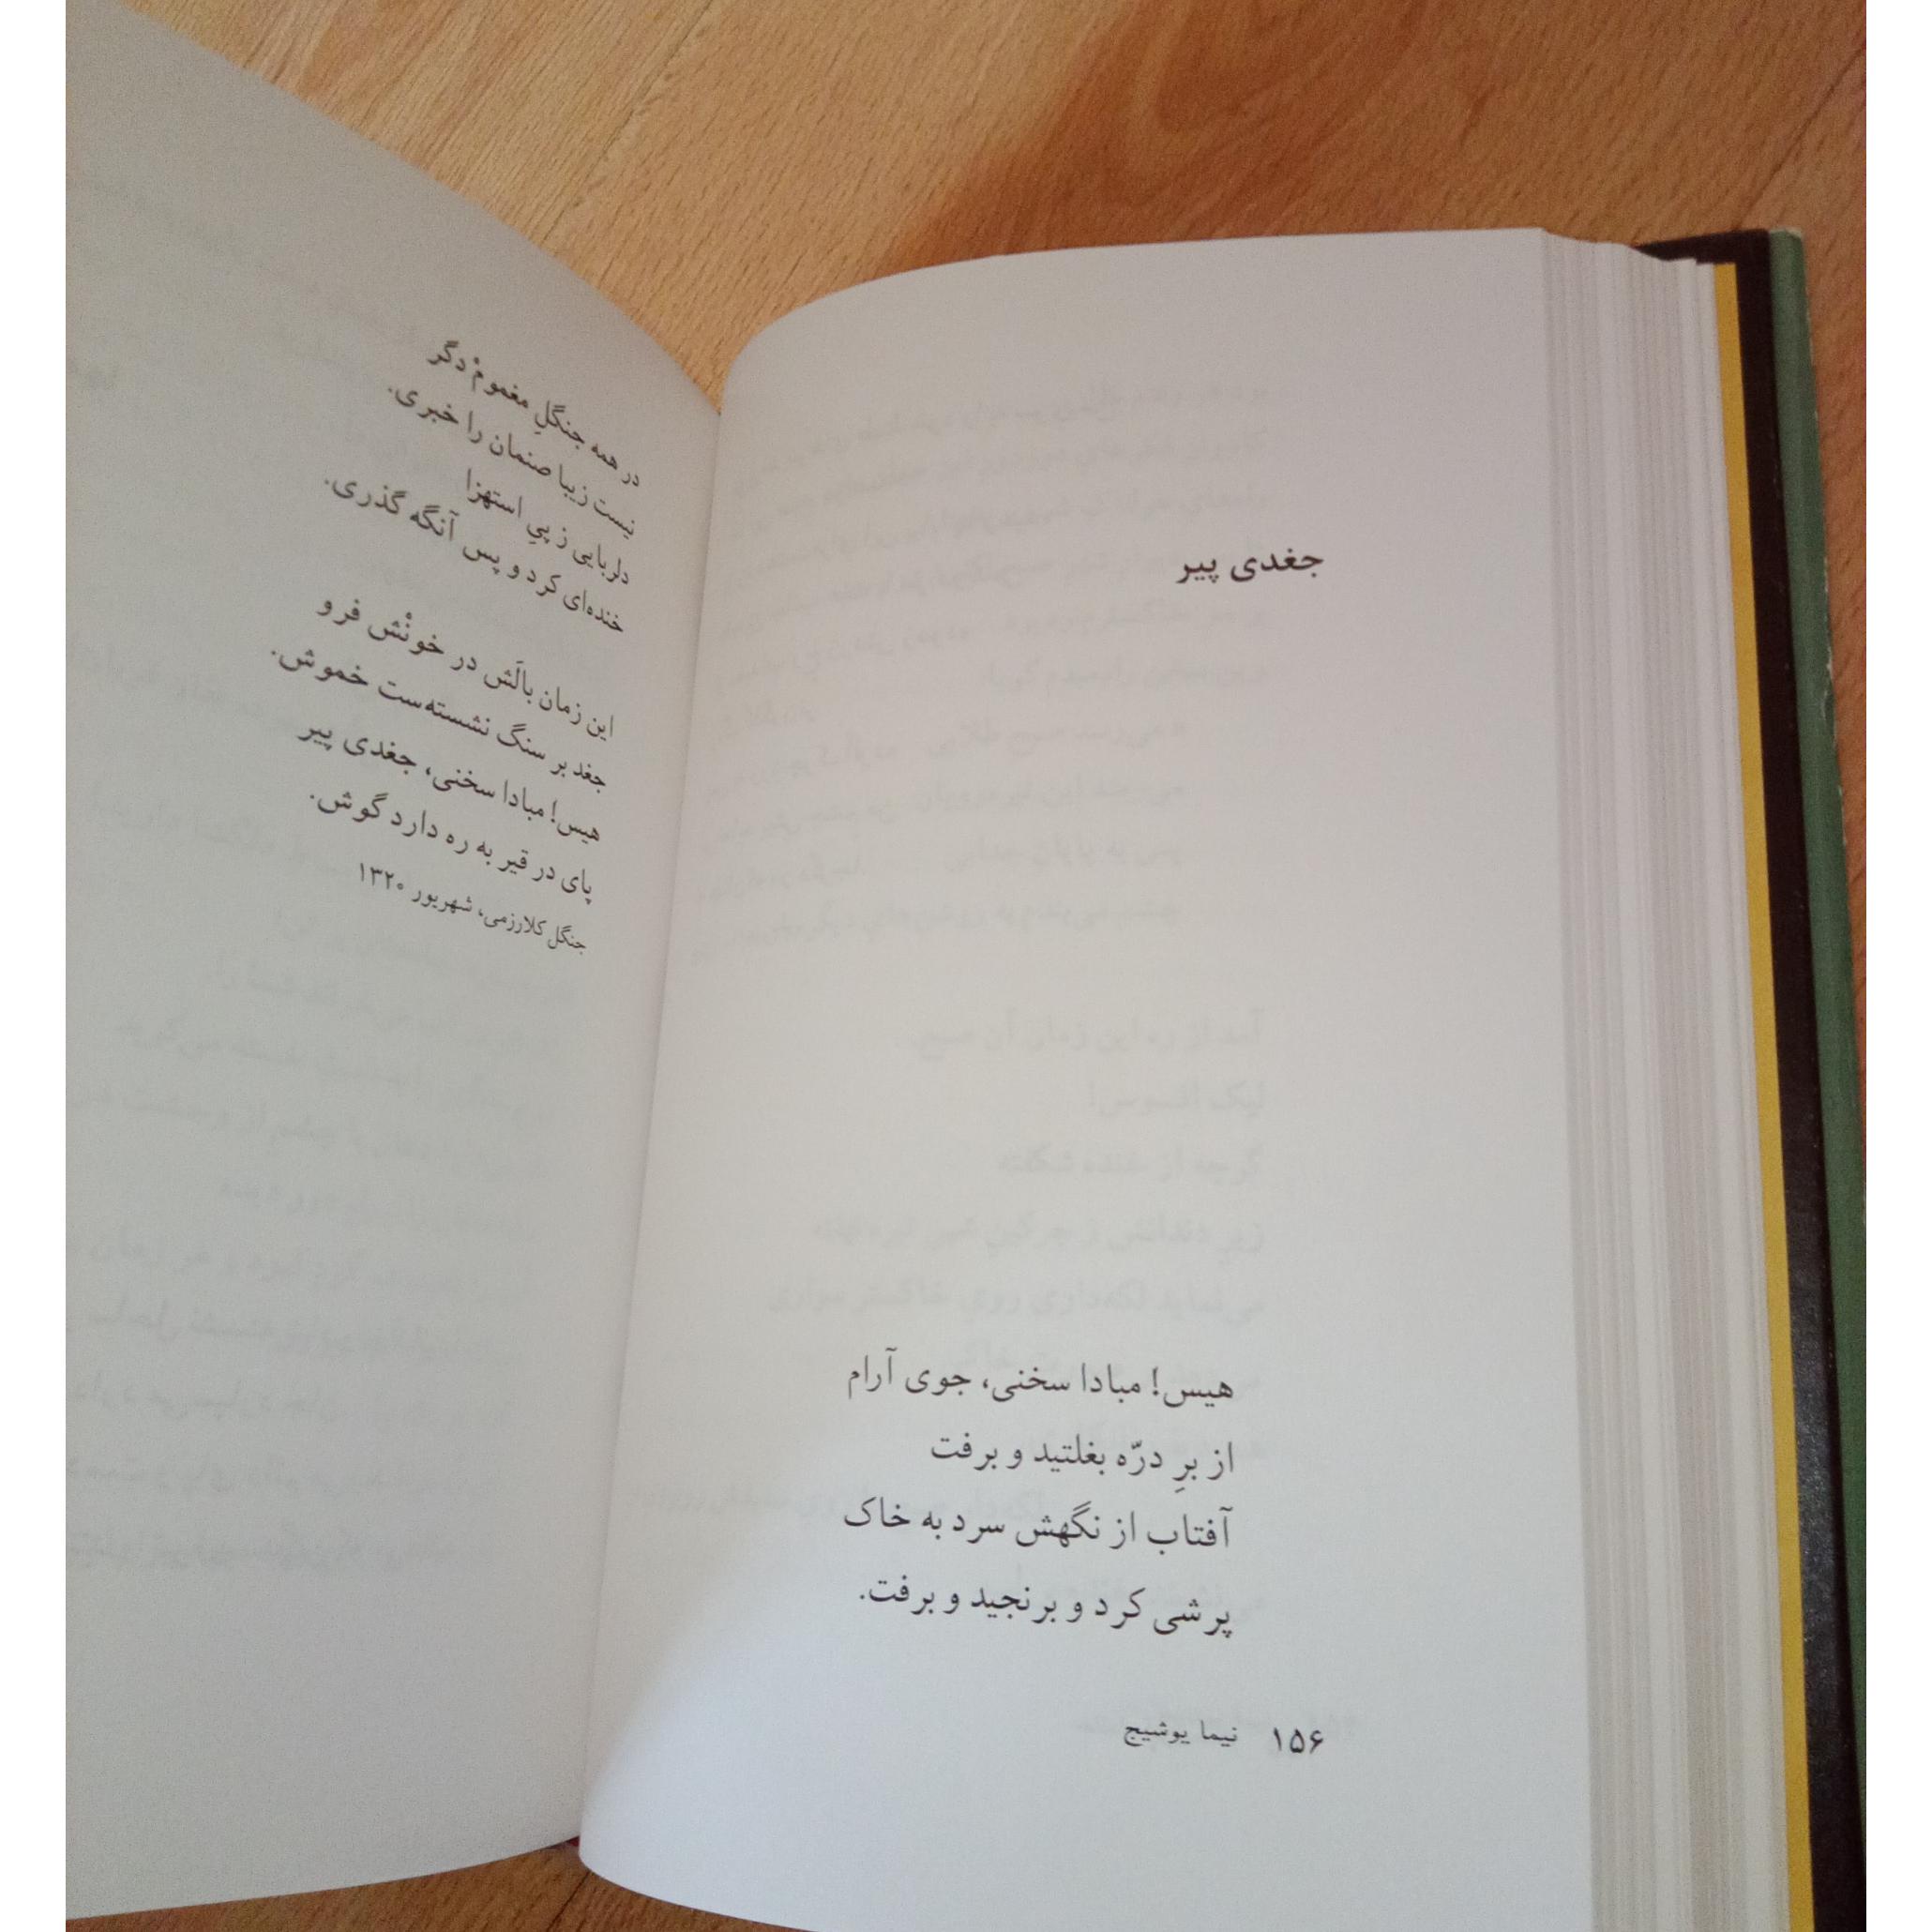 جغدی پیر
هیس! مبادا سخنی، جوی آرام
از برِ درّه بغلتید و برفت
آفتاب از نگهش سرد به خاک
پرشی کرد و برنجید و برفت.
۱۵۶ نیما یوشیج
در همه جنگلِ مغمومْ دگر
نیست زیبا صنمان را خبری.
دلربایی ز پیِ استهزا
خنده‌ای کرد و پس آنگه گذری.
این زمان بالَش در خونْش فرو
جغد بر سنگ نشسته‌ست خموش.
هیس! مبادا سخنی، جغدی پیر
پای در قیر به ره دارد گوش.
جنگل کلارزمی، شهریور ۱۳۲۰